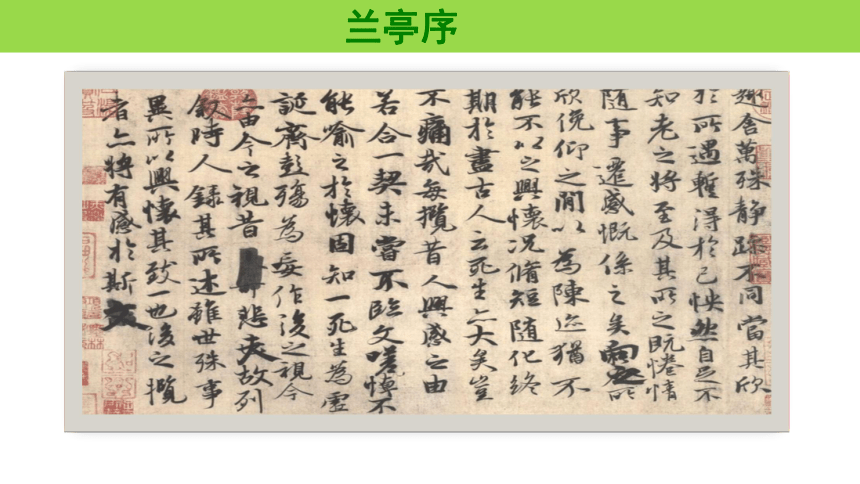 兰亭序
趣舍萬殊静躁不同當其欣
於所遇暫得於己怏然自足不
知老之將至及其所之既惓情
隨事遷感慨係之矣向之所
欣俛仰之閒以為陳迹猶不
能不以之興懷況脩短隨化終
期於盡古人云死生亦大矣豈
不痛哉每攬昔人興感之由
若合一契未嘗不臨文嗟悼不
能喻之於懷固知一死生為虛
誕齊彭殤為妄作後之視今
亦由今之視昔悲夫故列
敘時人錄其所述雖世殊事
異所以興懷其致一也後之攬
者亦將有感於斯文